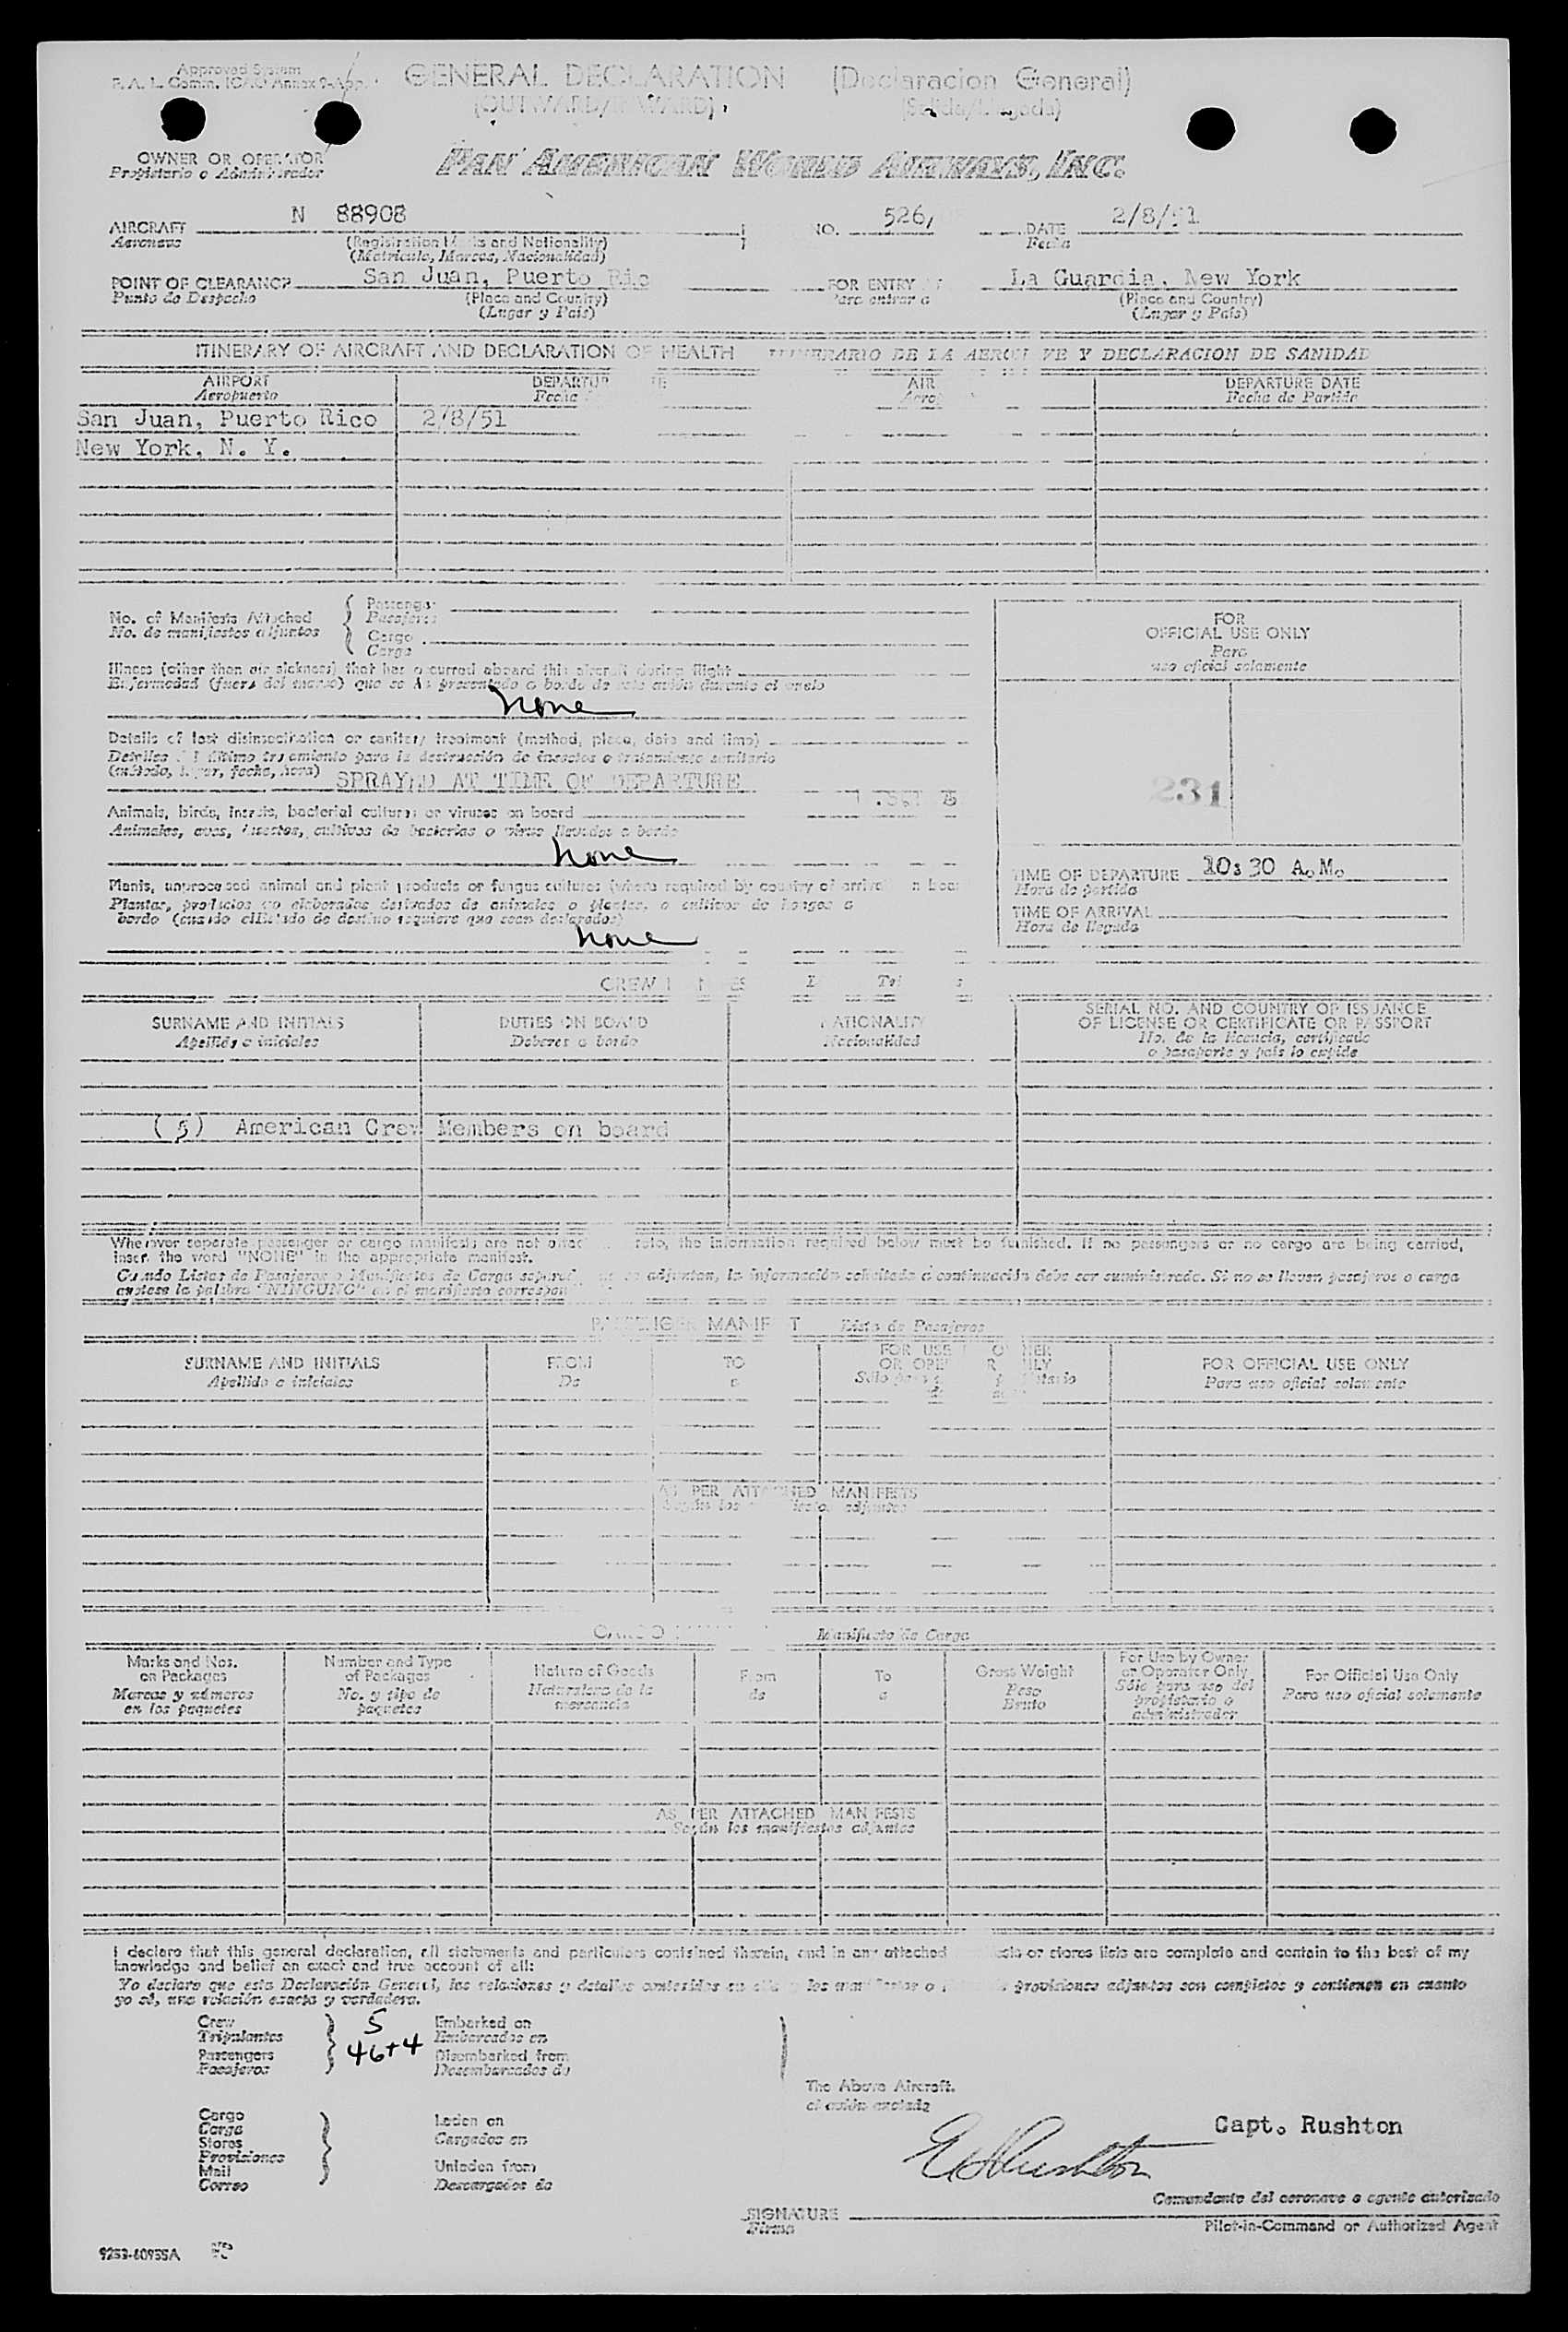 Approved System
GENERAL DECLARATION (Declaracion General)
OWNER OR OPERATOR
Propietario o Administrador
PAN AMERICAN WORLD AIRWAYS, INC.
AIRCRAFT N 88908 NO. 526, DATE 2/8/51
Aeronave Fecha
(Registration Marks and Nationality)
(Matricula, Marcas, Nacionalidad)
POINT OF CLEARANCE San Juan, Puerto Rico FOR ENTRY La Guardia, New York
Punto de Despacho (Place and Country) Para entrar a (Place and Country)
(Lugar y Pais) (Lugar y Pais)
ITINERARY OF AIRCRAFT AND DECLARATION OF HEALTH ITINERARIO DE LA AERONAVE Y DECLARACION DE SANIDAD
AIRPORT DEPARTURE DEPARTURE DATE
Aeropuerto Fecha Fecha de Partida
San Juan, Puerto Rico 2/8/51
New York, N. Y.
No. of Manifests Attached Passenger
No. de manifiestos adjuntos Pasajeros
Cargo
Carga
FOR
OFFICIAL USE ONLY
Para
uso oficial solamente
Illness (other than air sickness) that has occurred aboard this aircraft during flight
Enfermedad (fuera del mareo) que se ha presentado a bordo de este avión durante el vuelo
None
Details of last disinsectization or sanitary treatment (method, place, date and time)
Detalles del último tratamiento para la destrucción de insectos o tratamiento sanitario
(método, lugar, fecha, hora) SPRAYED AT TIME OF DEPARTURE
231
Animals, birds, insects, bacterial cultures or viruses on board
Animales, aves, insectos, cultivos de bacterias o virus llevados a bordo
None
TIME OF DEPARTURE 10:30 A.M.
Hora de partida
TIME OF ARRIVAL
Hora de llegada
Plants, unprocessed animal and plant products or fungus cultures (where required by country of arrival
Plantas, productos no elaborados derivados de animales o plantas, o cultivos de hongos a
bordo (cuando el Estado de destino requiere que sean declarados)
None
CREW
SURNAME AND INITIALS DUTIES ON BOARD NATIONALITY SERIAL NO. AND COUNTRY OF ISSUANCE
OF LICENSE OR CERTIFICATE OR PASSPORT
Apellido e iniciales Deberes a bordo Nacionalidad No. de la licencia, certificado
o pasaporte y pais lo expide
(5) American Crew Members on board
Whenever separate passenger or cargo manifests are not the information required below must be furnished. If no passengers or no cargo are being carried,
insert the word "NONE" in the appropriate manifest.
Cuando Listas de Pasajeros o Manifiestos de Carga adjuntan, la información solicitada a continuación debe ser suministrada. Si no se llevan pasajeros o carga
anotese la palabra "NINGUNO" en el manifiesto
PASSENGER MANIFEST Lista de Pasajeros
SURNAME AND INITIALS FROM TO FOR USE OWNER
OR OPERATOR ONLY FOR OFFICIAL USE ONLY
Apellido e iniciales De a Para uso oficial solamente
AS PER ATTACHED MANIFESTS
Según los adjuntos
CARGO Manifiesto de Carga
Marks and Nos.
on Packages
Marcas y números
en los paquetes
Number and Type
of Packages
No. y tipo de
paquetes
Nature of Goods
Naturaleza de la
mercancia
From
de
To
a
Gross Weight
Peso
Bruto
For Use by Owner
or Operator Only
Sólo para uso del
propietario o
administrador
For Official Use Only
Para uso oficial solamente
AS PER ATTACHED MANIFESTS
Según los manifiestos adjuntos
I declare that this general declaration, all statements and particulars contained therein, and in any attached or stores lists are complete and contain to the best of my
knowledge and belief an exact and true account of all:
Yo declaro que esta Declaración General, las relaciones y detalles contenidos en provisiones adjuntos son completos y contienen en cuanto
yo sé, una relación exacta y verdadera.
Crew 5 Embarked on
Tripulantes Embarcados en
Passengers 46+4 Disembarked from
Pasajeros Desembarcados de
The Above Aircraft.
el avión
Cargo
Carga
Stores
Provisiones
Mail
Correo
Laden on
Cargados en
Unladen from
Descargados de
Capt. Rushton
Rushton
Comandante del aeronave o agente autorizado
SIGNATURE
Firma
Pilot-in-Command or Authorized Agent
9253-60955A